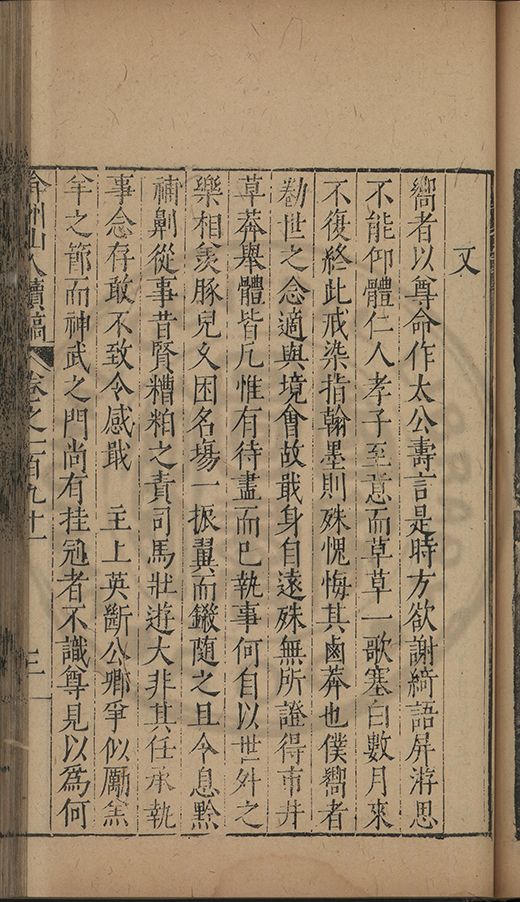 又
嚮者以尊命作太公壽言是時方欲謝綺語屏游思
不能仰體仁人孝子至意而草草一歌塞白數月來
不復終此戒染指翰墨則殊愧悔其鹵莽也僕嚮者
勌世之念適與境會故戢身自遠殊無所證得市井
草莽舉體皆凡惟有待盡而已執事何自以世外之
樂相羨豚兒又困名塲一振翼而鎩隨之且令息黥
補劓從事昔賢糟粕之責司馬壯遊大非其任承執
事念存敢不致令感戢　主上英斷公卿爭似勵羔
羊之節而神武之門尚有挂冠者不識尊見以爲何
弇州山人續稿　卷之一百九十一　三